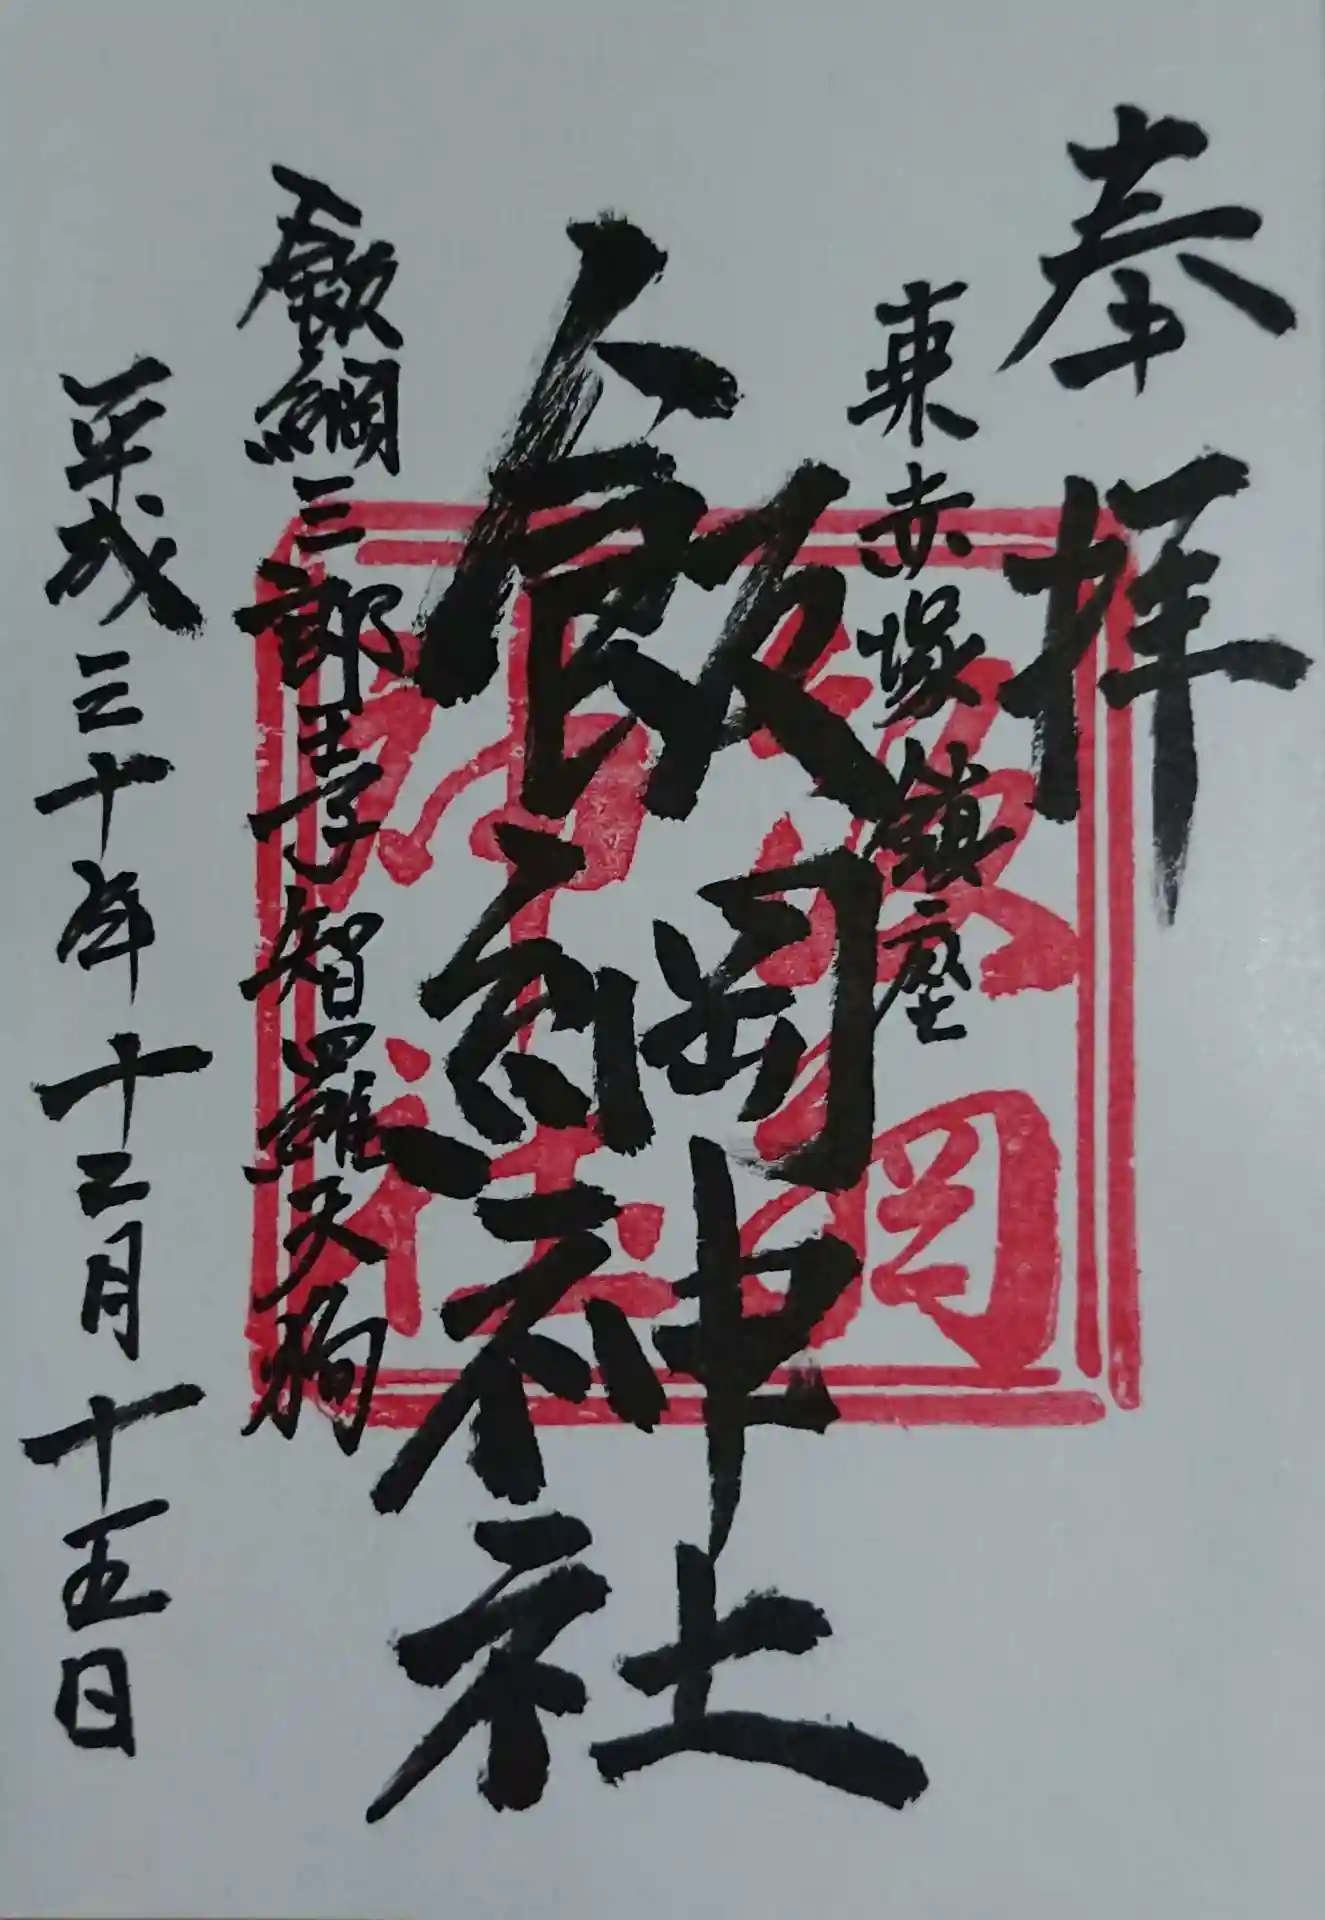 奉拝
東赤塚鎮座
飯綱神社
飯綱三郎
智羅天狗
平成三十年十二月十五日
飯綱
神社